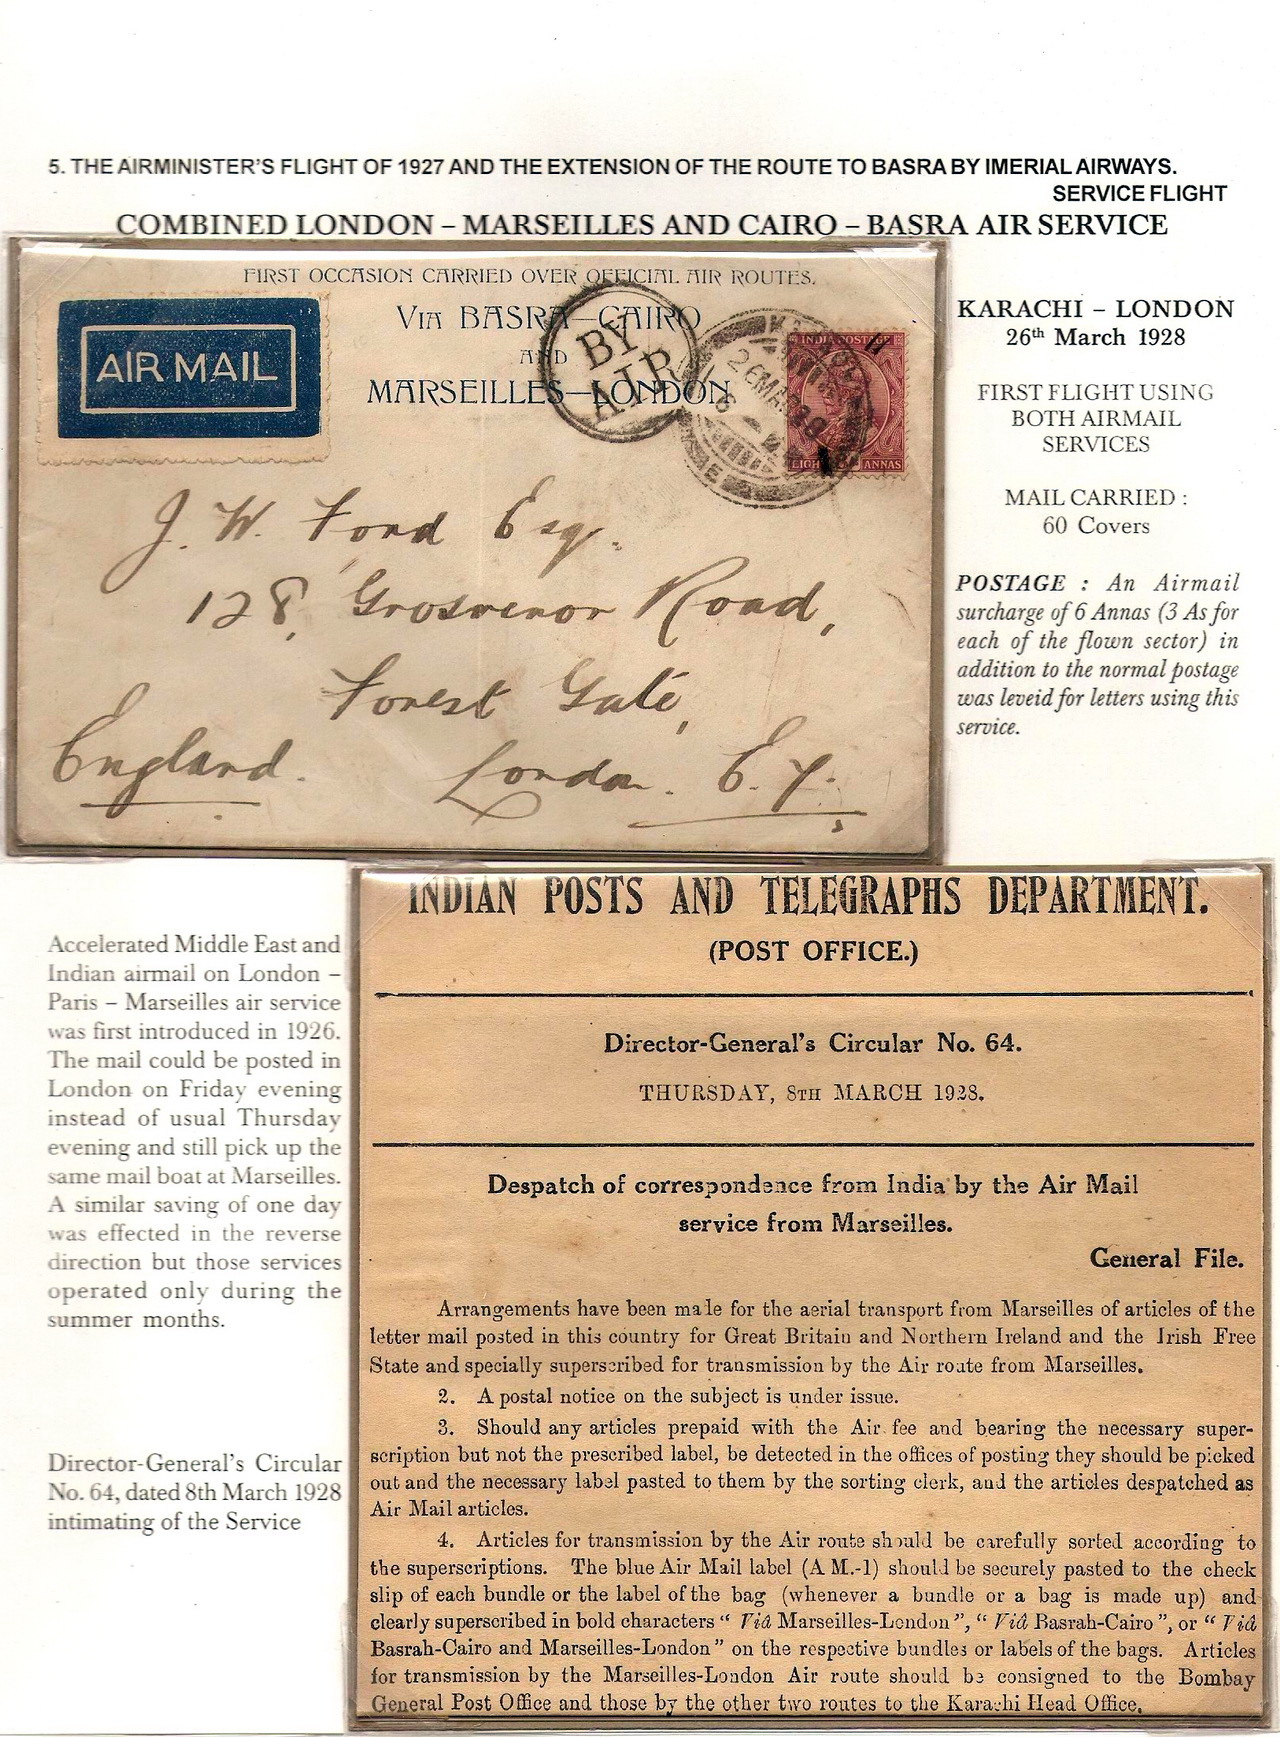 5. THE AIRMINISTER'S FLIGHT OF 1927 AND THE EXTENSION OF THE ROUTE TO BASRA BY IMERIAL AIRWAYS.
SERVICE FLIGHT
COMBINED LONDON – MARSEILLES AND CAIRO – BASRA AIR SERVICE
FIRST OCCASION CARRIED OVER OFFICIAL AIR ROUTES.
VIA BASRA—CAIRO
AND
MARSEILLES—LONDON
AIR MAIL
BY
AIR
26 MAR 28
INDIA POSTAGE
EIGHT ANNAS
J. W. Ford Esq.
128, Grosvenor Road,
Forest Gate,
England. London. E.7.
KARACHI – LONDON
26th March 1928
FIRST FLIGHT USING
BOTH AIRMAIL
SERVICES
MAIL CARRIED :
60 Covers
POSTAGE : An Airmail
surcharge of 6 Annas (3 As for
each of the flown sector) in
addition to the normal postage
was leveid for letters using this
service.
Accelerated Middle East and
Indian airmail on London –
Paris – Marseilles air service
was first introduced in 1926.
The mail could be posted in
London on Friday evening
instead of usual Thursday
evening and still pick up the
same mail boat at Marseilles.
A similar saving of one day
was effected in the reverse
direction but those services
operated only during the
summer months.
Director-General's Circular
No. 64, dated 8th March 1928
intimating of the Service
INDIAN POSTS AND TELEGRAPHS DEPARTMENT.
(POST OFFICE.)
Director-General's Circular No. 64.
THURSDAY, 8TH MARCH 1928.
Despatch of correspondence from India by the Air Mail
service from Marseilles.
General File.
Arrangements have been made for the aerial transport from Marseilles of articles of the
letter mail posted in this country for Great Britain and Northern Ireland and the Irish Free
State and specially superscribed for transmission by the Air route from Marseilles.
2. A postal notice on the subject is under issue.
3. Should any articles prepaid with the Air fee and bearing the necessary super-
scription but not the prescribed label, be detected in the offices of posting they should be picked
out and the necessary label pasted to them by the sorting clerk, and the articles despatched as
Air Mail articles.
4. Articles for transmission by the Air route should be carefully sorted according to
the superscriptions. The blue Air Mail label (A M.-1) should be securely pasted to the check
slip of each bundle or the label of the bag (whenever a bundle or a bag is made up) and
clearly superscribed in bold characters “ Viâ Marseilles-London ”, “ Viâ Basrah-Cairo ”, or “ Viâ
Basrah-Cairo and Marseilles-London ” on the respective bundles or labels of the bags. Articles
for transmission by the Marseilles-London Air route should be consigned to the Bombay
General Post Office and those by the other two routes to the Karachi Head Office.